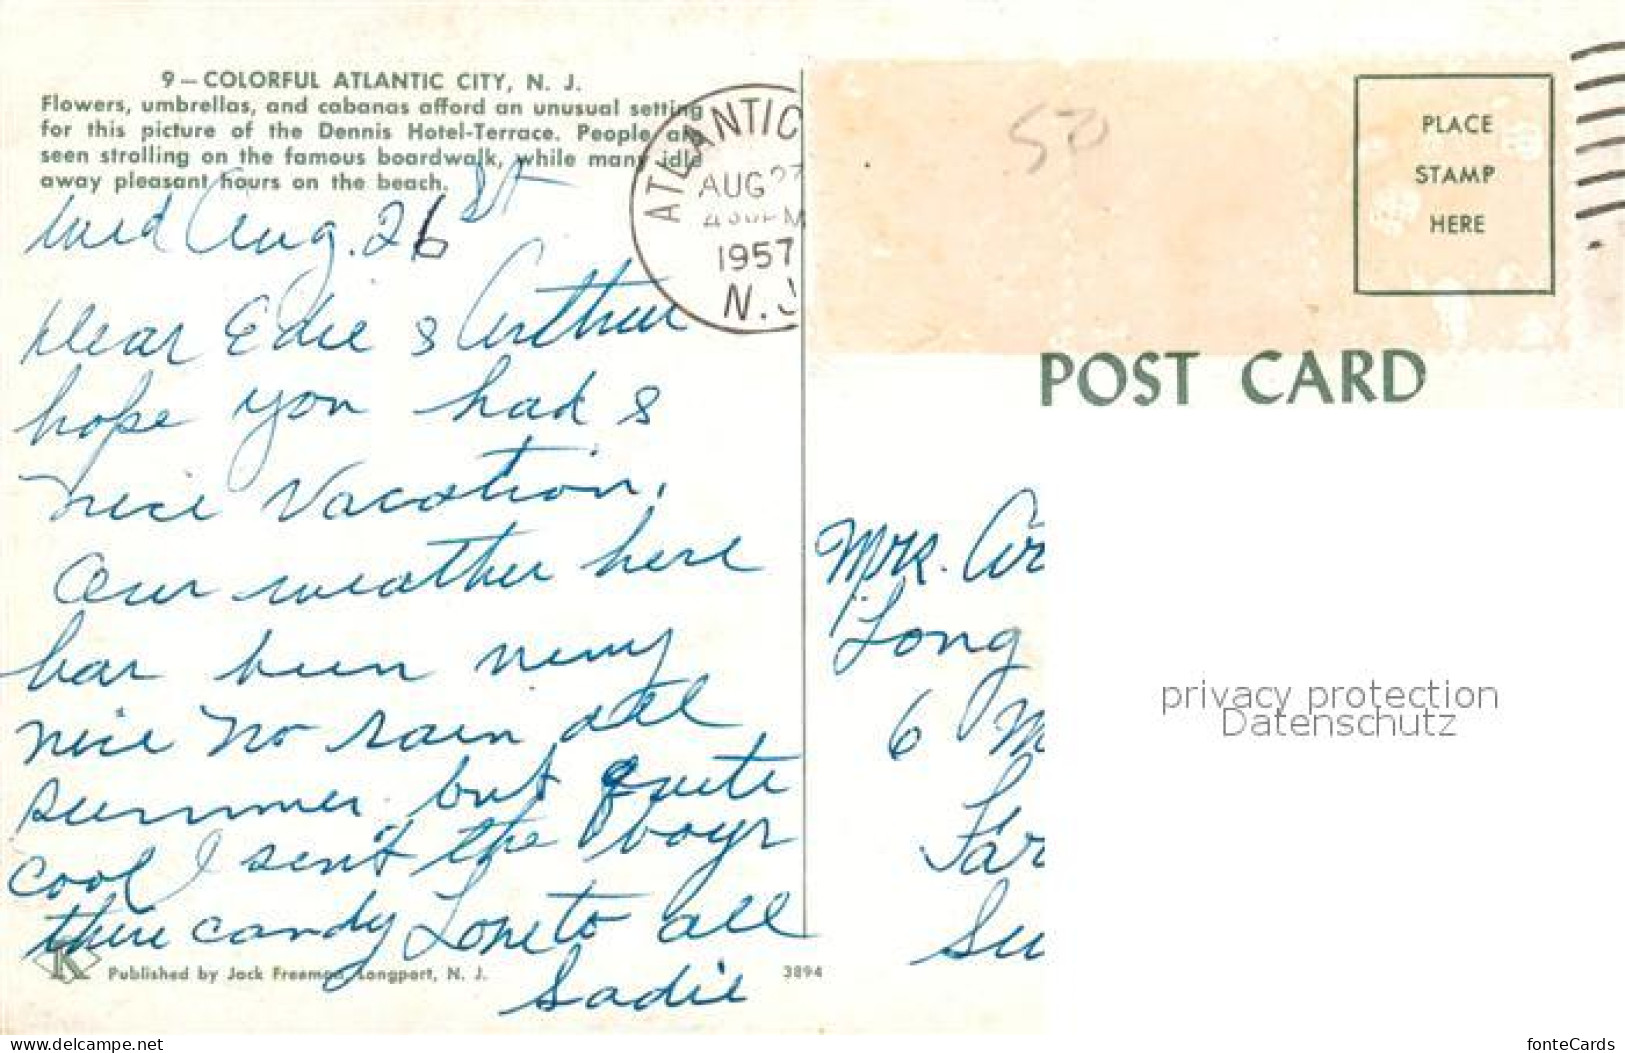 9 — COLORFUL ATLANTIC CITY, N. J.
Flowers, umbrellas, and cabanas afford an unusual setting
for this picture of the Dennis Hotel-Terrace. People are
seen strolling on the famous boardwalk, while many idle
away pleasant hours on the beach.
Wed Aug. 26 st
Dear Edie & Arthur
hope you had &
nice Vacation.
Our weather here
has been very
nice no rain all
summer but quite
cool I sent the boys
there candy Love to all
Sadie
Published by Jack Freeman, Longport, N. J.
3894
ATLANTIC
AUG 27
4 00 PM
1957
N. J
50
PLACE
STAMP
HERE
POST CARD
Mrs. Ar
Long
6 M
Far
Su
privacy protection
Datenschutz
www.delcampe.net
fonteCards